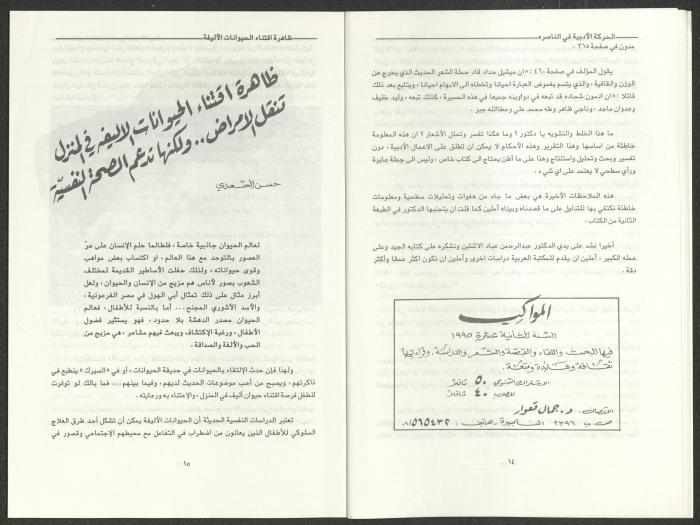 الحركة الأدبية في الناصره
مدون في صفحة ٣١٥ .
يقول المؤلف في صفحة ٤٦٠ : «ان ميشيل حداد قاد حملة الشعر الحديث الذي يخرج عن
الوزن والقافية ، والذي يتسم بغموض العبارة احيانا وتخطاه الى الابهام احيانا ، ويتابع بعد ذلك
قائلا : «ان ادمون شحاده قد تبعه في دواوينه جميعا في هذه المسيرة ، كذلك تبعه ، وليد خليف
وعدوان ماجد ، وناجي ظاهر وطه محمد علي وعطاالله جبر .
ما هذا الخلط والتشويه يا دكتور ؟ وما هكذا تفسر وتحلل الأشعار ؟ ان هذه المعلومة
خاطئة من اساسها وهذا التقرير وهذه الأحكام لا يمكن ان تطلق على الاعمال الأدبية ، دون
تفسير وبحث وتحليل واستنتاج وهذا على ما أظن يحتاج الى كتاب خاص ، وليس الى جملة عابرة
ورأي سطحي لا يعتمد على اي شيء .
هذه الملاحظات الأخيرة هي بعض ما جاء من هفوات وتحليلات سطحية ومعلومات
خاطئة نكتفي بها للتدليل على ما قصدناه وبيناه آملين كما قلت ان يتجنبها الدكتور في الطبعة
الثانية من الكتاب .
أخيرا نشد على يدي الدكتور عبدالرحمن عباد الاثنتين ونشكره على كتابه الجيد وعلى
عمله الكبير ، آملين ان يقدم للمكتبة العربية دراسات اخرى وآملين ان تكون اكثر عمقا وأكثر
دقة .
المواكب
السنة الثانية عشرة ١٩٩٥
فيها البحث واللقاء والقصة والشعر والدراسة. وقراءتها
ثقافة وفائدة ومتعة.
الاشتراك السنوي ٥٠ شاقل
للطلاب ٤٠ شاقل
الاتصال: د. جمال قعوار
ص.ب ٢٣٩٦ الناصرة. هاتف: ٥٦٥٤٣٢/٠٦
١٤
ظاهرة اقتناء الحيوانات الأليفة
ظاهرة اقتناء الحيوانات الأليفة في المنزل
تنقل الأمراض.. ولكنها تدعم الصحة النفسية
حسن السعدي
لعالم الحيوان جاذبية خاصة ، فلطالما حلم الإنسان على مرّ
العصور بالتوحد مع هذا العالم ، او اكتساب بعض مواهب
وقوى حيواناته ، ولذلك حفلت الأساطير القديمة لمختلف
الشعوب بصور لأناس هم مزيج من الإنسان والحيوان ، ولعل
أبرز مثال على ذلك تمثال أبي الهول في مصر الفرعونية ،
والأسد الآشوري المجنح .... أما بالنسبة للأطفال ، فعالم
الحيوان مصدر الدهشة بلا حدود ، فهو يستثير فضول
الأطفال ، ورغبة الإكتشاف ويبعث فيهم مشاعر ، هي مزيج من
الحب والألفة والصداقة .
ولهذا فإن حدث الإلتقاء بالحيوانات في حديقة الحيوانات ، أو في «السيرك» ينطبع في
ذاكرتهم ، ويصبح من أحب موضوعات الحديث لديهم ، وفيما بينهم ... فما بالك لو توفرت
للطفل فرصة اقتناء حيوان أليف في المنزل ، والإعتناء به ورعايته .
تعتبر الدراسات النفسية الحديثة أن الحيوانات الأليفة يمكن أن تشكل أحد طرق العلاج
السلوكي للأطفال الذين يعانون من اضطراب في التفاعل مع محيطهم الإجتماعي وقصور في
١٥